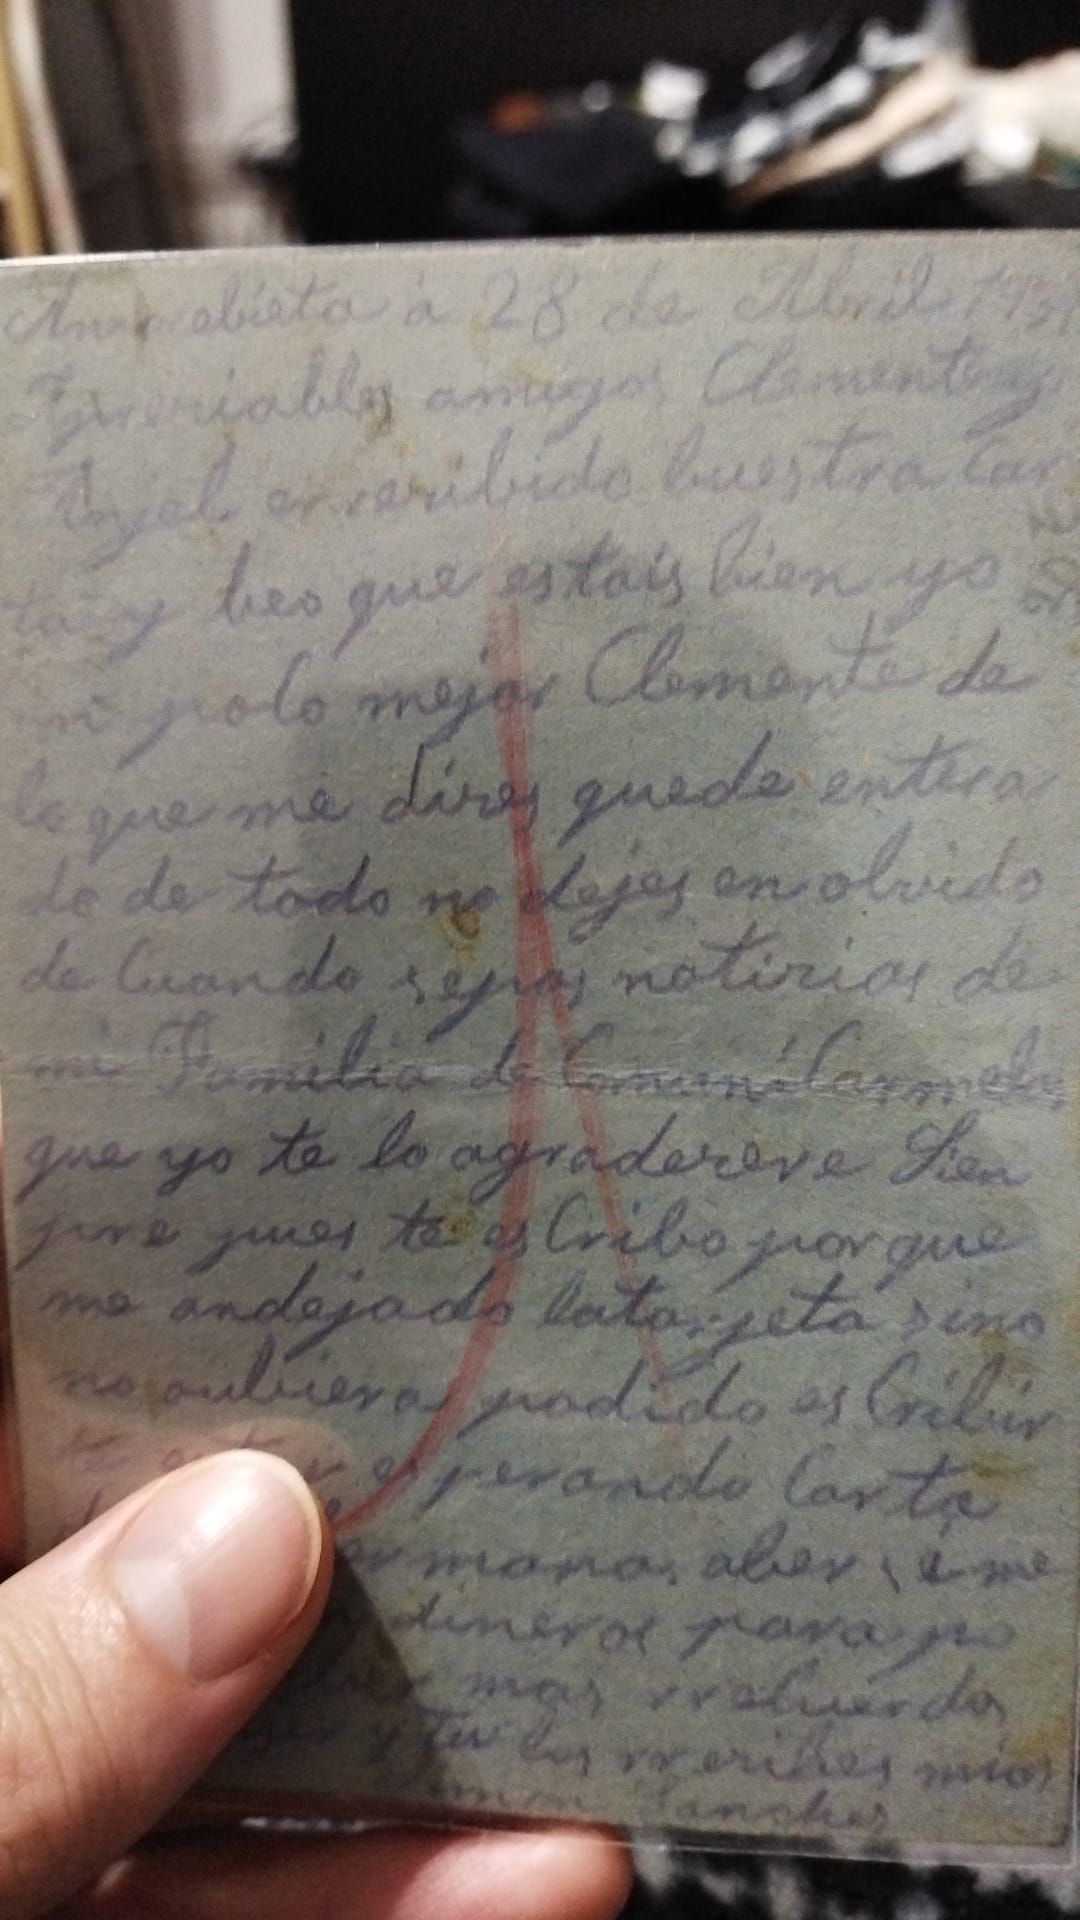 Amorebieta á 28 de Abril 193
Apreriables amigos Clemente y
Anjel erreribido buestra Car
ta y beo que estais bien yo
mi polo mejor Clemente de
lo que me dires quede entera
do de todo no dejes en olvido
de Cuando sepas notirias de
mi Familia de Carmela
que yo te lo agraderere Sien
pre pues te es Cribo porque
me andejado latarjeta sino
no aubiera podido es Cribir
te esperando Carta
ermanos aber si me
dineros para yo
mas rrecuerdos
y tu los rreribes mios
Sanches